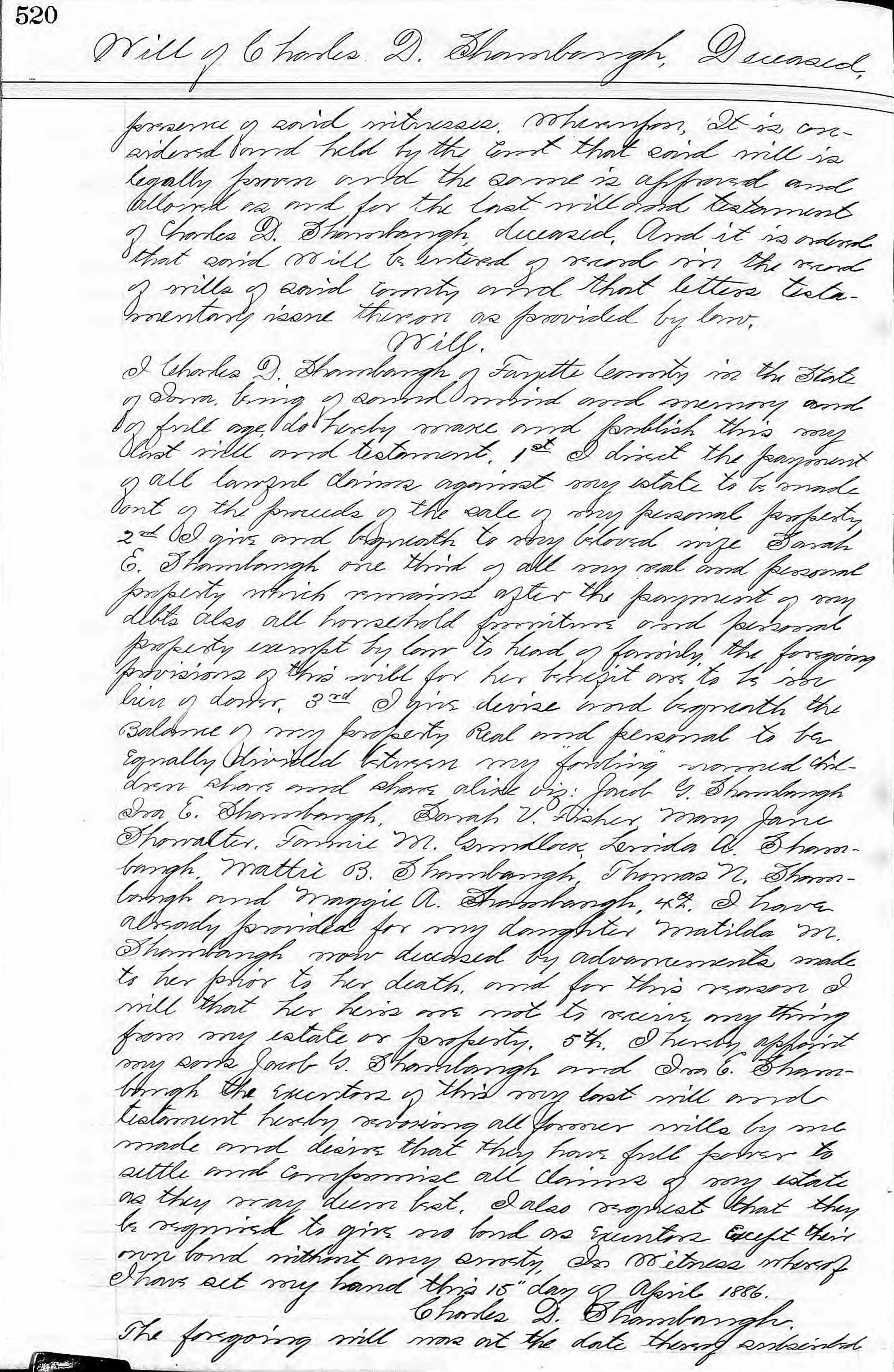 520
Will of Charles D. Shambaugh, Deceased,
presence of said witnesses. Whereupon, It is, con-
sidered and held by the Court that said will is
legally proven and the same is approved and
allowed as and for the last will and testament
of Charles D. Shambaugh, deceased. And it is ordered
that said Will be entered of record in the record
of wills of said county and that letters testa-
mentary issue thereon as provided by law.
Will.
I Charles D. Shambaugh of Fayette County in the State
of Iowa, being of sound mind and memory and
of full age, do hereby make and publish this my
last will and testament. 1st I direct the payment
of all lawful claims against my estate to be made
out of the proceeds of the sale of my personal property
2nd I give and bequeath to my beloved wife Sarah
E. Shambaugh one third of all my real and personal
property which remains after the payment of my
debts also all household furniture and personal
property exempt by law to head of family, the foregoing
provisions of this will for her benefit are to be in
lieu of dower. 3rd I give devise and bequeath the
Balance of my property Real and personal to be
Equally divided between my named chil-
dren share and share alike viz: Jacob G. Shambaugh
Ira E. Shambaugh, Sarah V. Fisher, Mary Jane
Showalter, Fannie M. A. Sham-
baugh, Mattie B. Shambaugh, Thomas N. Sham-
baugh and Maggie A. Shambaugh, 4th. I have
already provided for my daughter Matilda M.
Shambaugh now deceased by advancements made
to her prior to her death, and for this reason I
will that her heirs are not to receive any thing
from my estate or property. 5th. I hereby appoint
my sons Jacob G. Shambaugh and Ira E. Sham-
baugh the Executors of this my last will and
testament hereby revoking all former wills by me
made and desire that they have full power to
settle and compromise all claims of my estate
as they may deem best. I also request that they
be required to give no bond as Executors Except their
own bond without any surety, In Witness whereof
I have set my hand this 15" day of April 1886.
Charles D. Shambaugh.
The foregoing will was at the date thereof subscribed